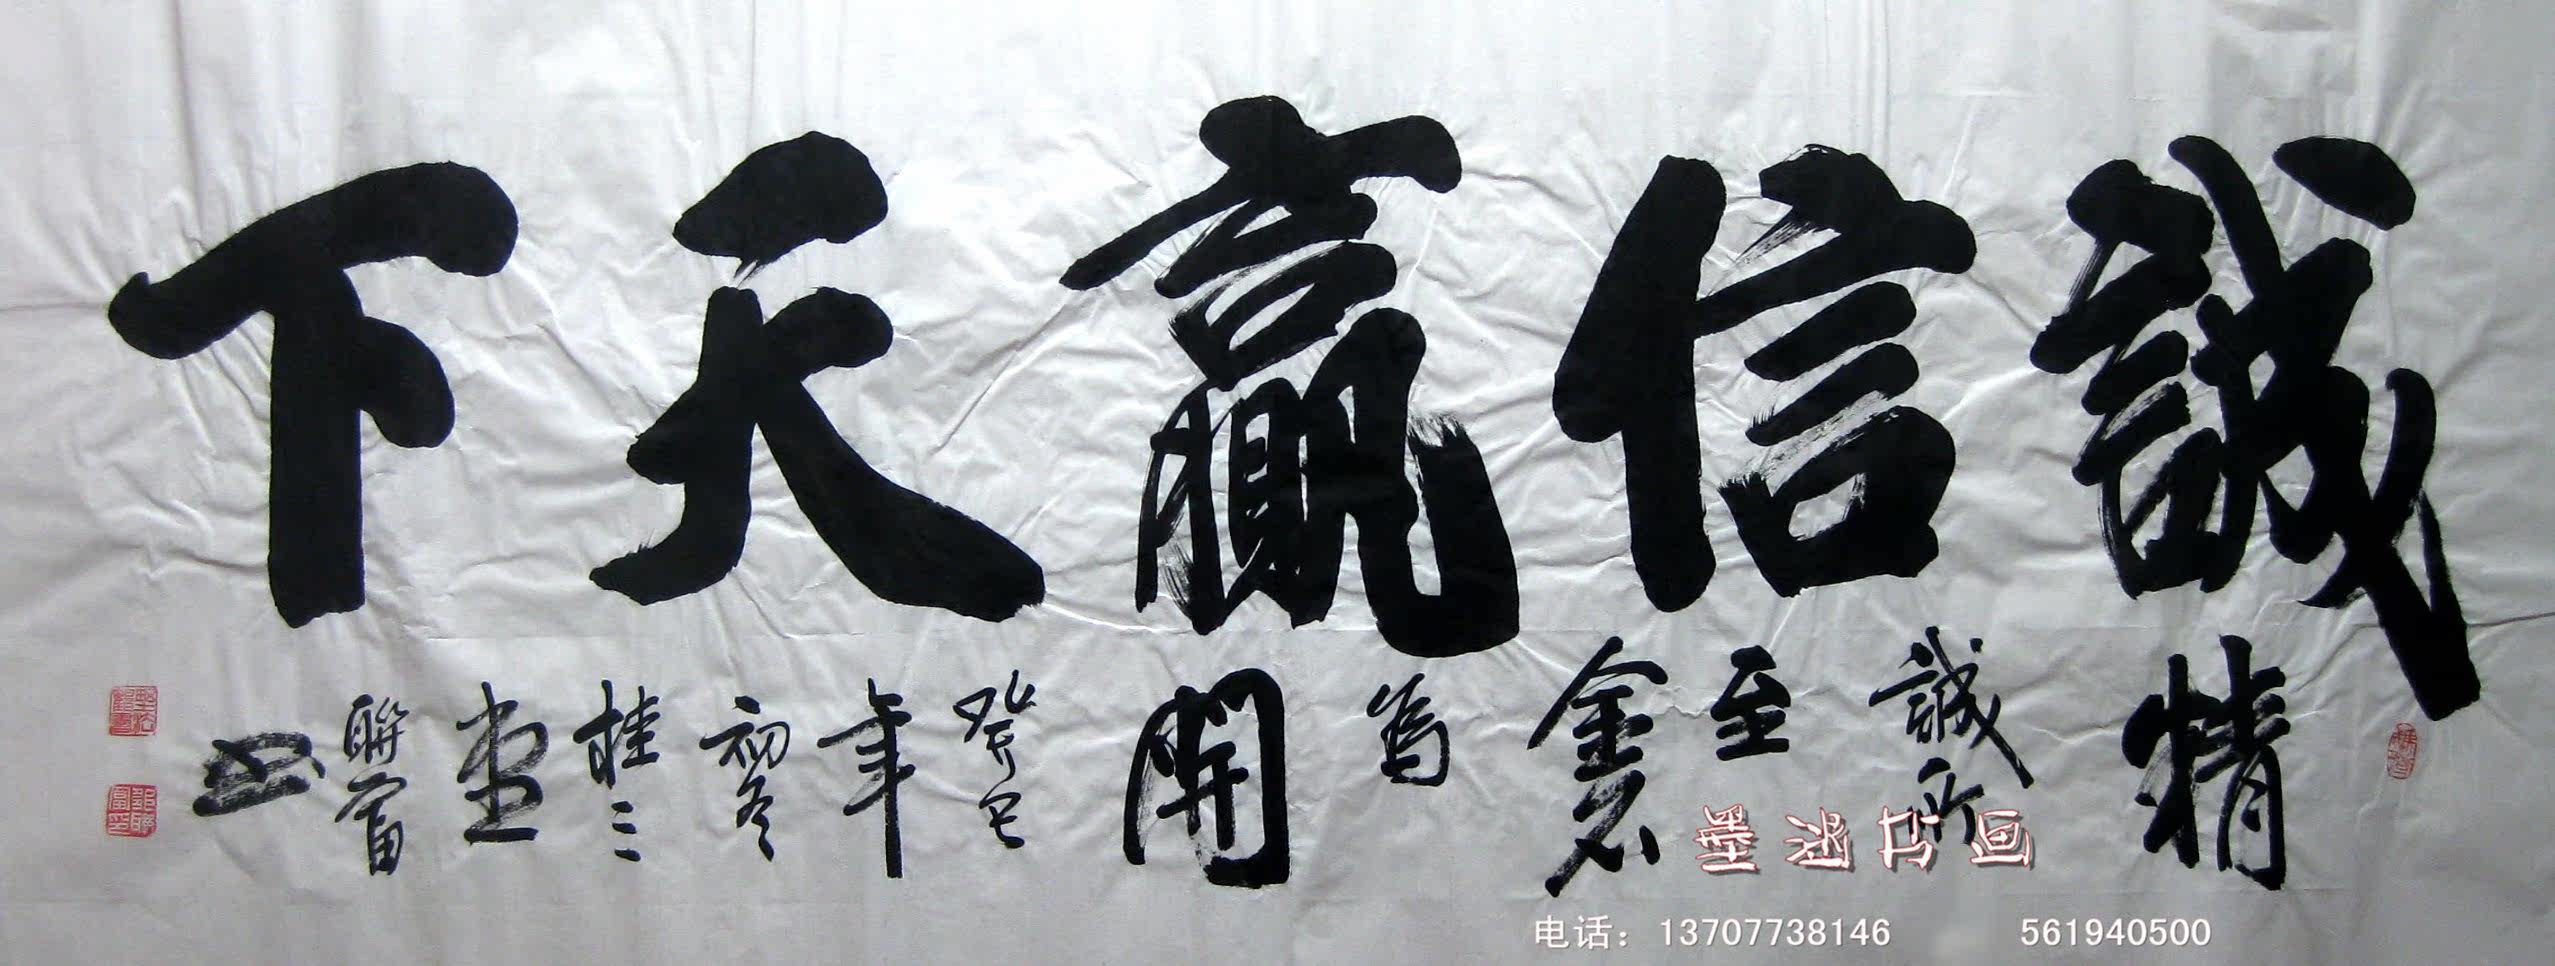 誠信贏天下
精誠所至金石為開
癸巳年初冬桂三堂聯富書
墨涵书画
电话：13707738146 561940500